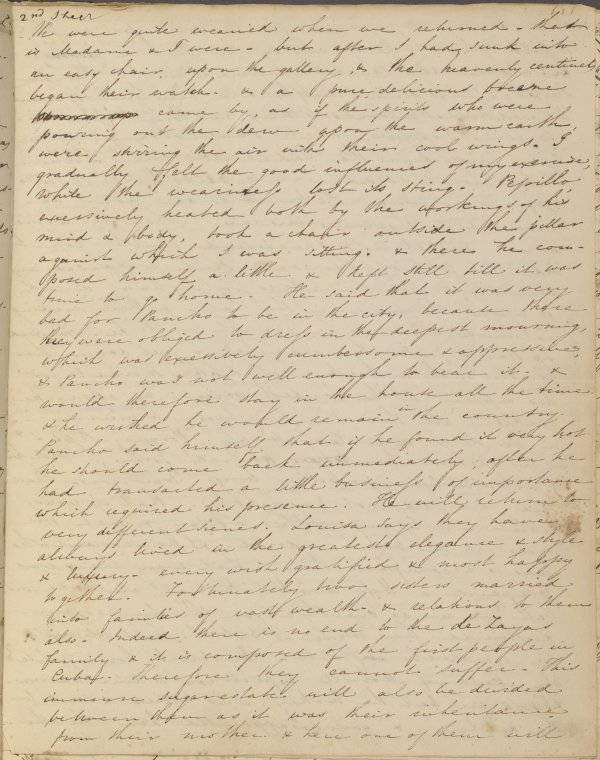 2nd Sheet
We were quite wearied when we returned - that
is Madame & I were - but after I had sunk into
an easy chair upon the gallery & the heavenly centinels
began their watch - & a pure delicious breeze
came by, as if the spirits who were
pouring out the dew upon the warm earth,
were stirring the air with their cool wings - I
gradually felt the good influences of my exercise,
while the weariness lost its sting. Pepillo,
excessively heated both by the workings of his
mind & body, took a chair outside the pillar
against which I was sitting - & there he com-
posed himself a little & kept still till it was
time to go home. He said that it was very
bad for Pancho to be in the city, because there
they were obliged to dress in the deepest mourning,
which was excessively cumbersome & oppressive,
& Pancho was not well enough to bear it - &
would therefore stay in the house all the time
& he wished he would remain in the country.
Pancho said himself that if he found it very hot
he should come back immediately, after he
had transacted a little business of importance
which required his presence. He will return to
very different scenes. Louisa says they have
always lived in the greatest elegance & style
& luxury - every wish gratified & most happy
together. Fortunately two sisters married
into families of vast wealth - & relations to them
also. Indeed there is no end to the de Zayas
family & it is composed of the first people in
Cuba - therefore they cannot suffer - This
immense sugar estate will also be divided
between them as it was their inheritance
from their mother & here one of them will